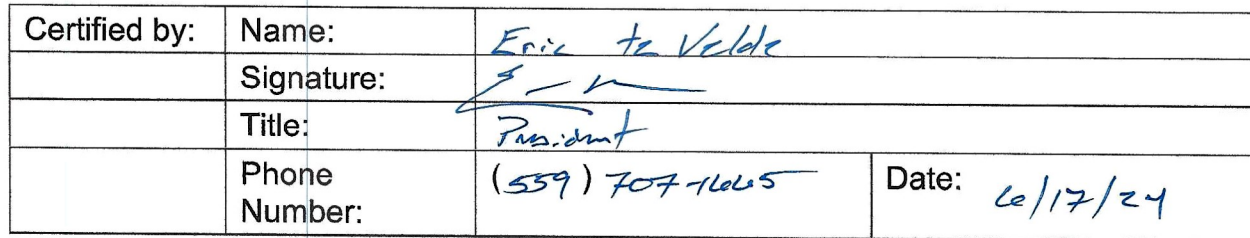 Certified by: Name: Eric te Velde
Signature:
Title: President
Phone Number: (559) 707-1665 Date: 6/17/24